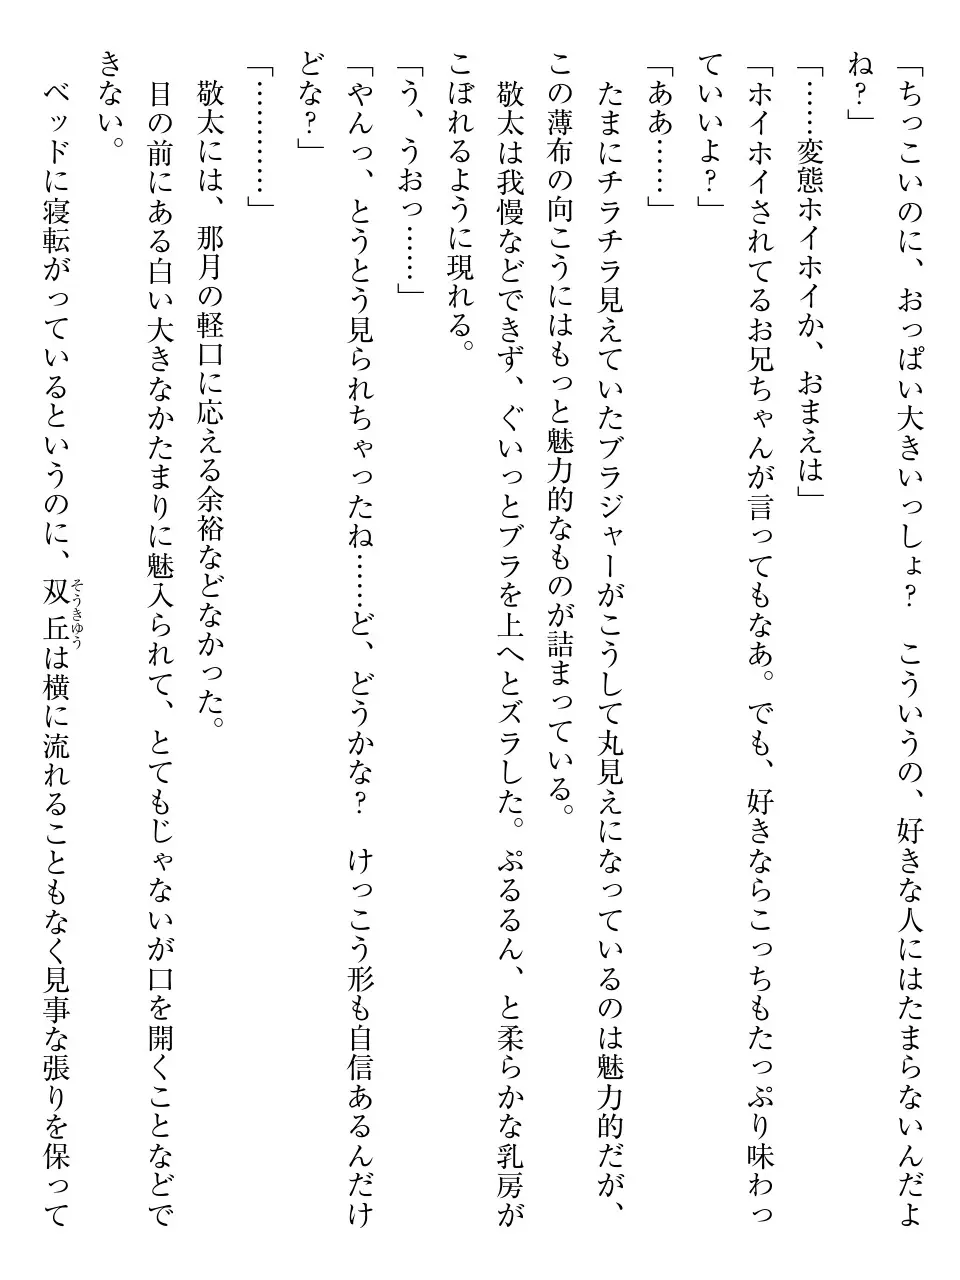 「ちっこいのに、おっぱい大きいっしょ？　こういうの、好きな人にはたまらないんだよ
ね？」
「……変態ホイホイか、おまえは」
「ホイホイされてるお兄ちゃんが言ってもなあ。でも、好きならこっちもたっぷり味わっ
ていいよ？」
「ああ……」
　たまにチラチラ見えていたブラジャーがこうして丸見えになっているのは魅力的だが、
この薄布の向こうにはもっと魅力的なものが詰まっている。
　敬太は我慢などできず、ぐいっとブラを上へとズラした。ぷるるん、と柔らかな乳房が
こぼれるように現れる。
「う、うおっ……」
「やんっ、とうとう見られちゃったね……ど、どうかな？　けっこう形も自信あるんだけ
どな？」
「…………」
　敬太には、那月の軽口に応える余裕などなかった。
　目の前にある白い大きなかたまりに魅入られて、とてもじゃないが口を開くことなどで
きない。
　ベッドに寝転がっているというのに、双丘そうきゆうは横に流れることもなく見事な張りを保って